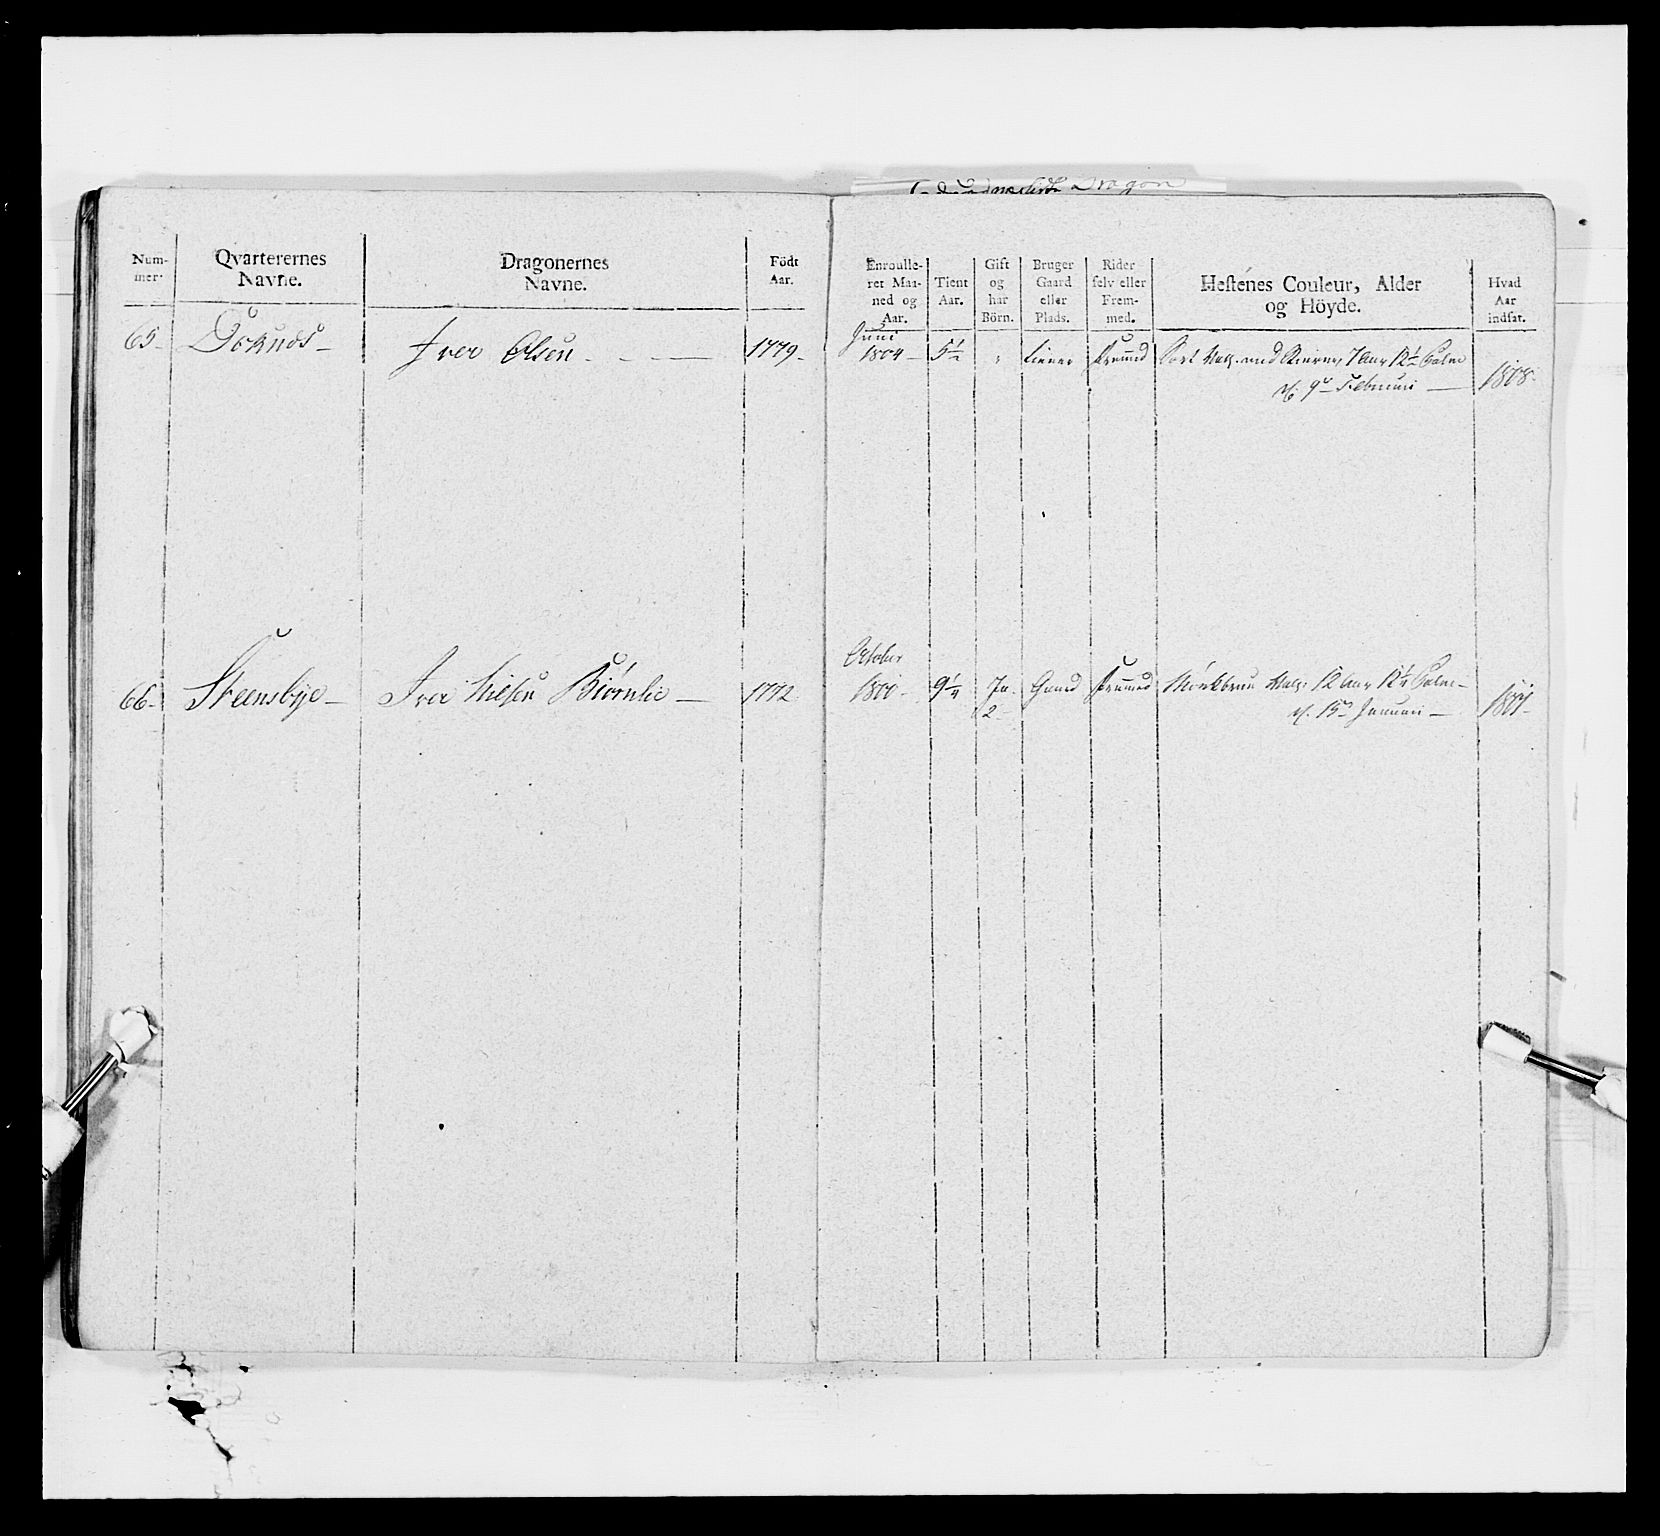 Dragon
Num-
mer.
Qvarterernes
Navne.
Dragonernes
Navne.
Födt
Aar.
Enroulle-
ret Maa-
ned og
Aar.
Tient
Aar.
Gift
og
har
Börn.
Bruger
Gaard
eller
Plads.
Rider
selv eller
Frem-
med.
Hestenes Couleur, Alder
og Höyde.
Hvad
Aar
indsat.
65.
Iver Olsen
1779.
Juni
1804
5 1/2
"
tiener
fremmed
Sort Valk. med Stierne, 7 Aar 12 1/2 Palme
d. 9de Februari
1808.
66.
Steensbye
Iver Nielsen
1772
October
1800
9 1/4
Ja
2
Gaard
fremmed
Mörkbrun Valk. 12 Aar 12 1/4 Palme
d. 15de Januari